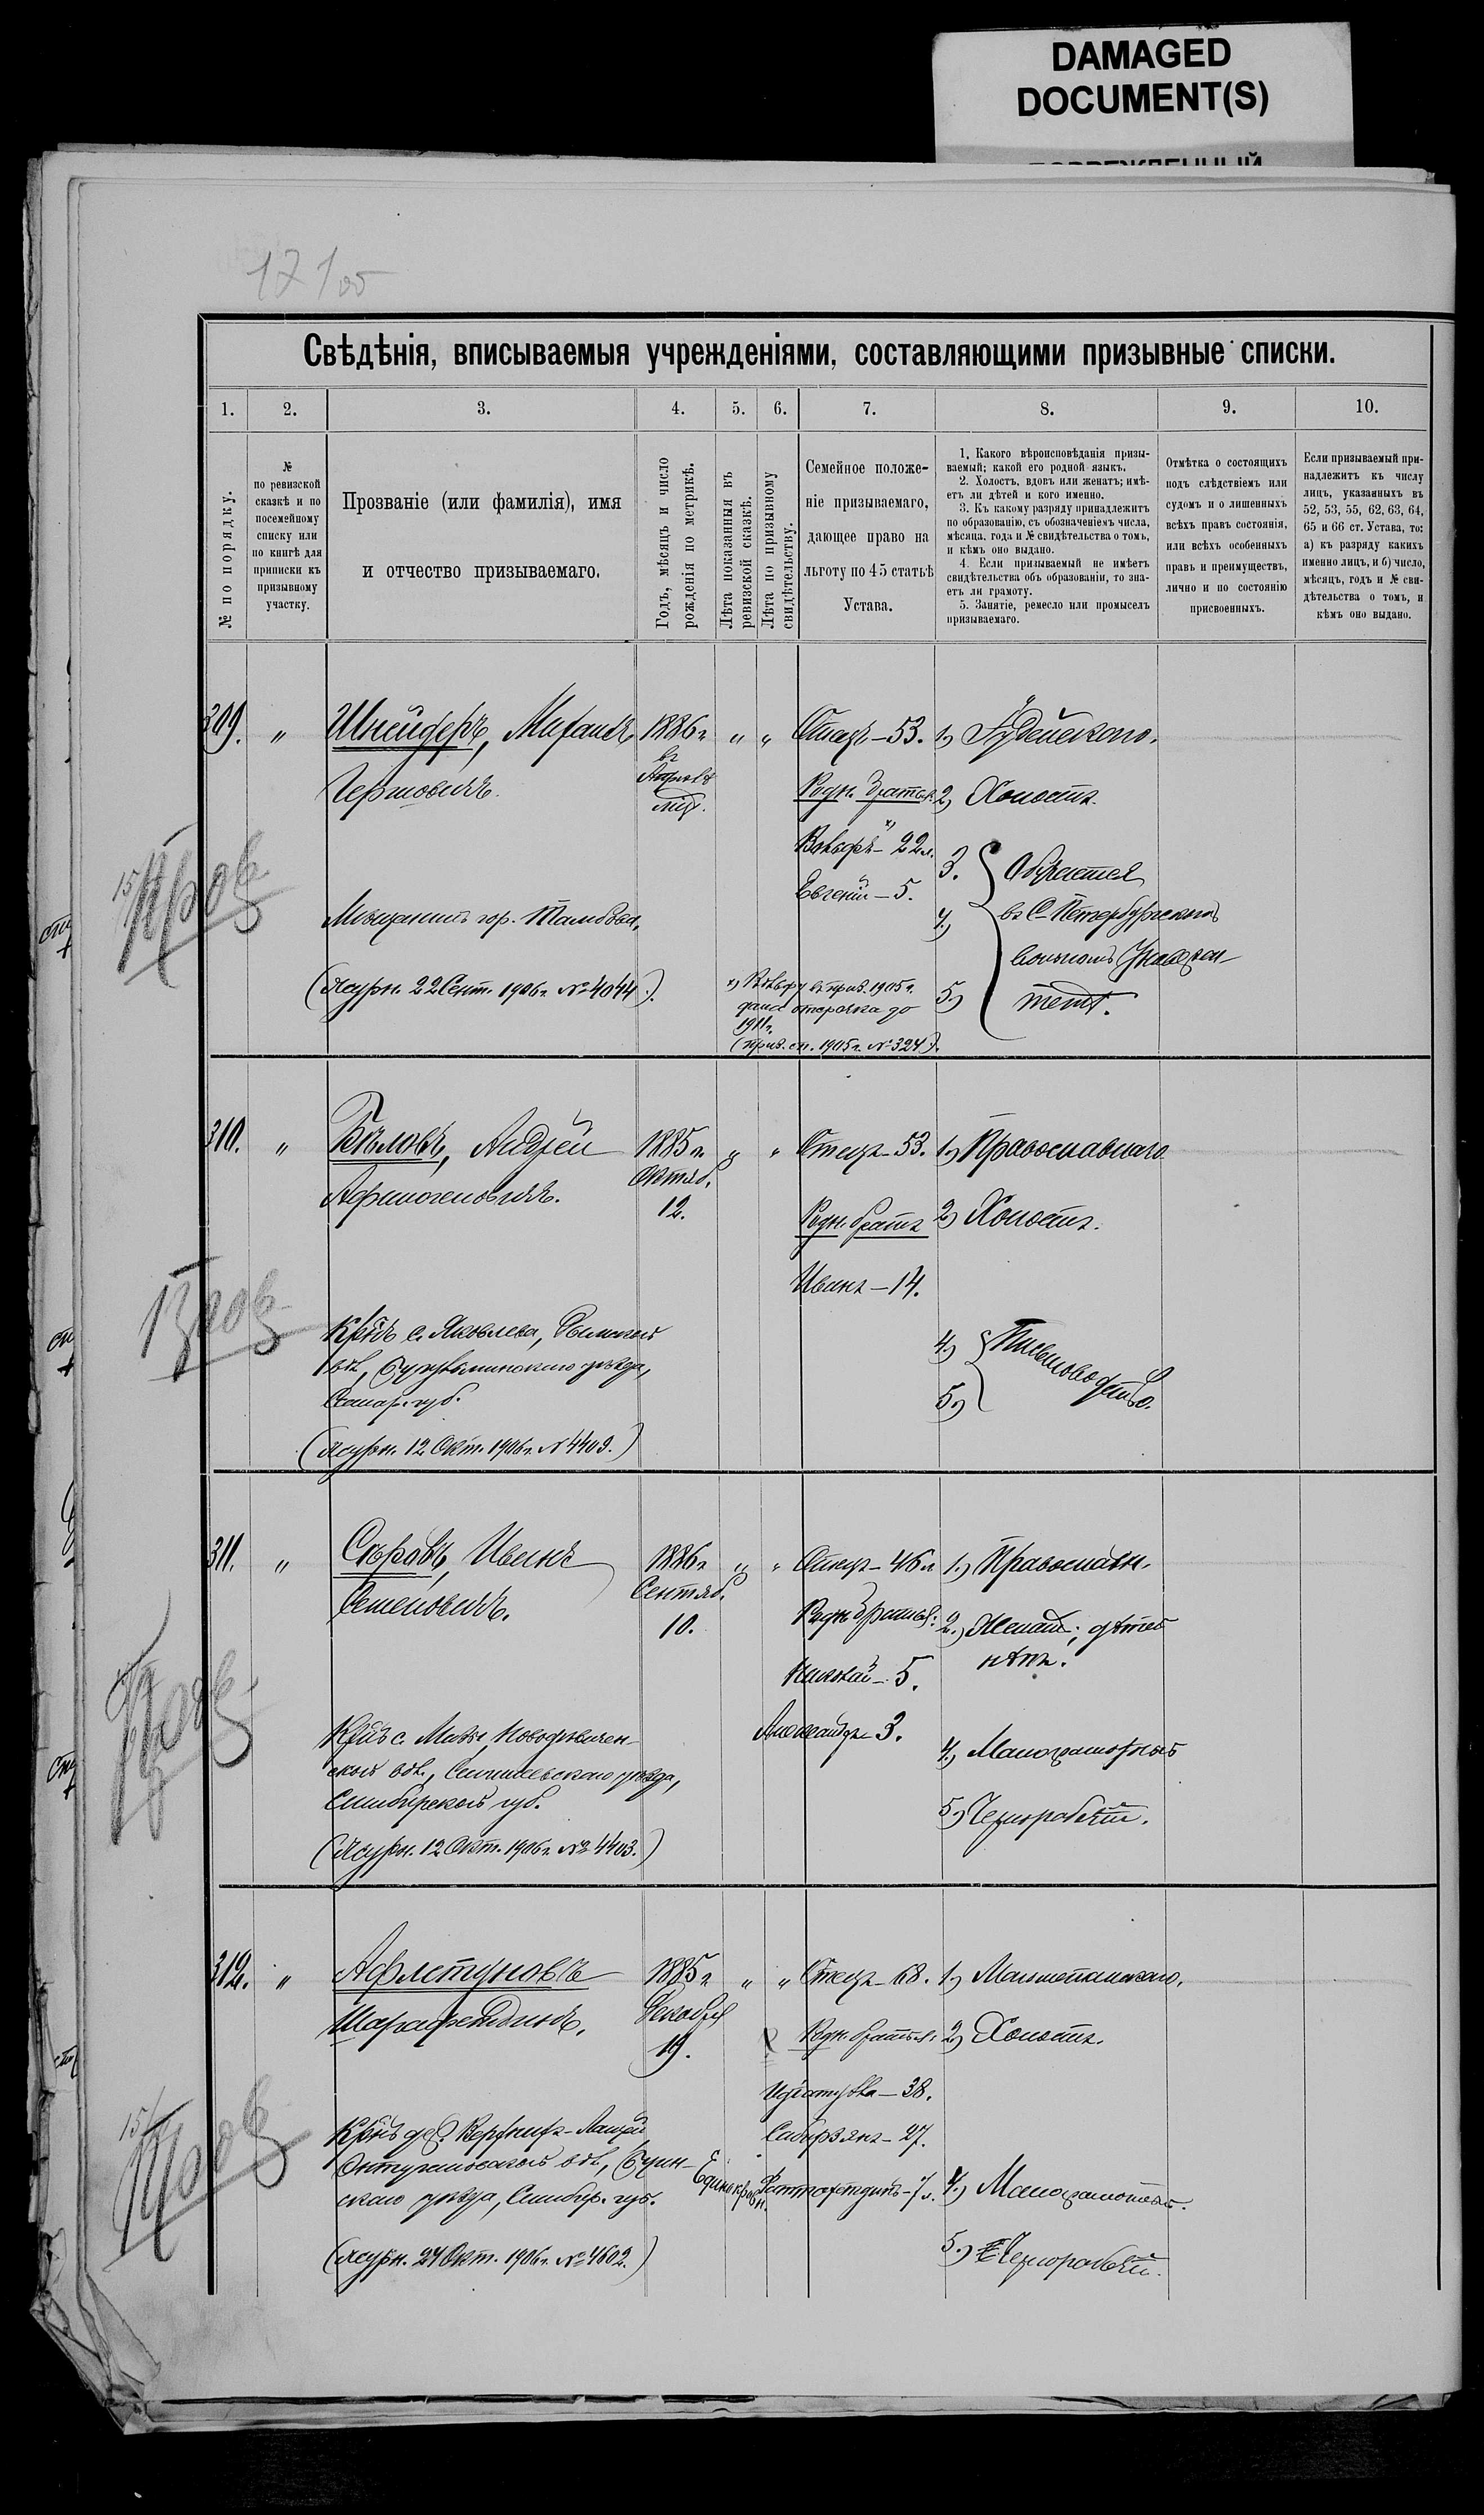 DAMAGED
DOCUMENT(S)
Свѣдѣнія, вписываемыя учрежденіями, составляющими призывные списки.
1. 2. 3. 4. 5. 6. 7. 8. 9. 10.
№ по порядку.
№
по ревизской
сказкѣ и по
посемейному
списку или
по книгѣ для
приписки къ
призывному
участку.
Прозваніе (или фамилія), имя
и отчество призываемаго.
Годъ, мѣсяцъ и число
рожденія по метрикѣ.
Лѣта показанныя въ
ревизской сказкѣ.
Лѣта по призывному
свидѣтельству.
Семейное положе-
ніе призываемаго,
дающее право на
льготу по 45 статьѣ
Устава.
1. Какого вѣроисповѣданія призы-
ваемый; какой его родной языкъ.
2. Холостъ, вдовъ или женатъ; имѣ-
етъ ли дѣтей и кого именно.
3. Къ какому разряду принадлежитъ
по образованію, съ обозначеніемъ числа,
мѣсяца, года и № свидѣтельства о томъ,
и кѣмъ оно выдано.
4. Если призываемый не имѣетъ
свидѣтельства объ образованіи, то зна-
етъ ли грамоту.
5. Занятіе, ремесло или промыселъ
призываемаго.
Отмѣтка о состоящихъ
подъ слѣдствіемъ или
судомъ и о лишенныхъ
всѣхъ правъ состоянія,
или всѣхъ особенныхъ
правъ и преимуществъ,
лично и по состоянію
присвоенныхъ.
Если призываемый при-
надлежитъ къ числу
лицъ, указанныхъ въ
52, 53, 55, 62, 63, 64,
65 и 66 ст. Устава, то:
а) къ разряду какихъ
именно лицъ, и б) число,
мѣсяцъ, годъ и № сви-
дѣтельства о томъ, и
кѣмъ оно выдано.
309. " Шнейдеръ, Михаилъ 1886 г. " " Отецъ – 53. 1) Іудейскаго.
Гершовичъ.
въ
Родн. братья 2) Холостъ.
Вольфъ – 22 л.
Евгеній – 5.
3. Обучается
4) въ С-Петербургскомъ
5)
Мѣщанинъ гор. Тамбова.
(Журн. 22 Сент. 1906 г. № 4044).
х) Вольфу въ приз. 1905 г.
дана отсрочка до
1911 г.
(приз. сп. 1905 г. № 324).
310. " Бѣловъ, Андрей 1885 г. " " Отецъ – 53. 1) Православнаго
Афиногеновичъ.
Октяб.
12.
Родн. братъ 2) Холостъ.
Иванъ – 14.
Кр-нъ с. Яковлева,
вол., Бугурусланского уѣзда,
Самар. губ.
(Журн. 12 Окт. 1906 г. № 4409.)
4)
5)
311. " Сѣровъ, Иванъ 1886 г. " " Отецъ – 46 л. 1) Православн.
Семеновичъ.
Сентяб.
10.
Родн. братья: 2.) Женатъ; дѣтей
нѣтъ.
Николай – 5.
Александръ – 3.
Кр-нъ с. Новодѣвичен-
ской вол., Сенгилеевскаго уѣзда,
Симбирской губ.
(Журн. 12 Окт. 1906 г. № 4403.)
4.) Малограмотный
5) Чернорабочій.
312. " Афлетуновъ 1885 г. " " Отецъ – 68. 1) Магометанскаго.
Шарафетдинъ.
Декабря
19.
Родн. братья: 2) Холостъ.
– 38.
Сабирзянъ – 27.
Единокровн. – 7 л.
Кр-нъ дер. Верхнихъ-Лащей
вол., Буин-
скаго уѣзда, Симбир. губ.
(Журн. 24 Окт. 1906 г. № 4602.)
4.) Малограмотный.
5.) Чернорабочій.